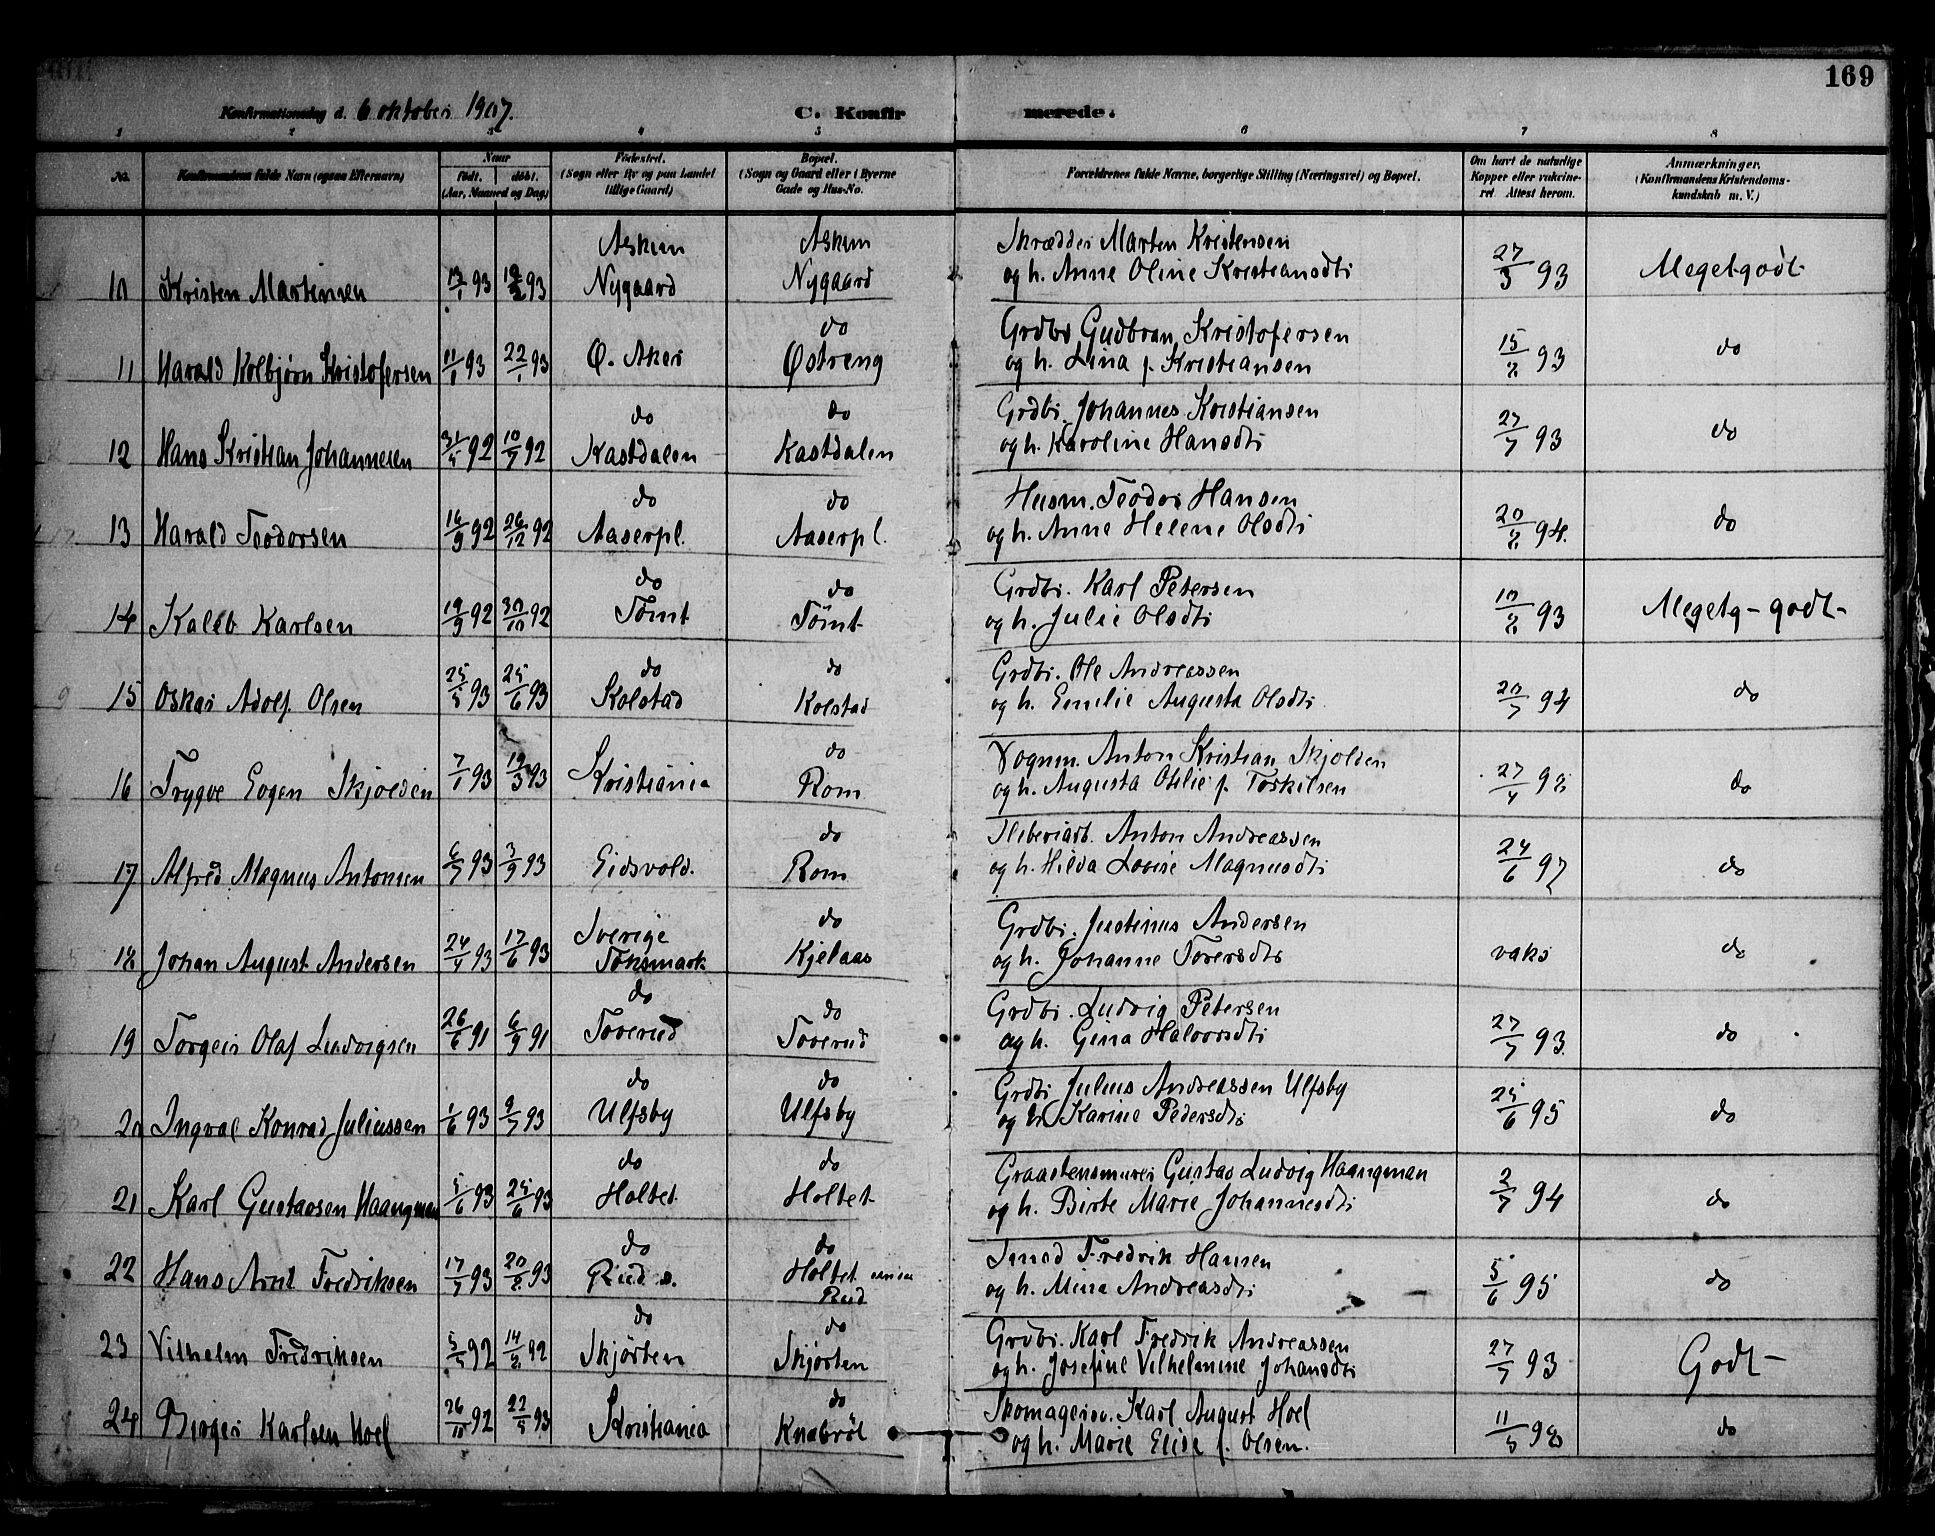 169
Konfirmationsdag d. 6 oktober 1907.
C. Konfirmerede.
1 2 3 4 5 6 7 8
No. Konfirmandens fulde Navn (ogsaa Efternavn) Naar født. døbt. (Aar, Maaned og Dag) Fødested. (Sogn eller By og paa Landet tillige Gaard) Bopæl. (Sogn og Gaard eller i Byerne Gade og Hus-No. Forældrenes fulde Navne, borgerlige Stilling (Næringsvei) og Bopæl. Om havt de naturlige Kopper eller vakcineret. Attest herom. Anmærkninger. (Konfirmandens Kristendomskundskab m. V.)
Askim Askim Skrædder Marten Kristensen
10 Kristen Martinsen 13/1 93 19/2 93 Nygaard Nygaard og h. Anne Oline Kristiansdtr 27/3 93 Meget godt
do Grdbr Gudbran Kristofersen
11 Harald Kolbjørn Kristofersen 11/1 93 22/1 93 Ø. Aker Østreng og h. Lina f. Kristiansen 15/8 93 do
do do Grdbr. Johannes Kristiansen
12 Hans Kristian Johannesen 31/5 92 10/7 92 Kastdalen Kastdalen og h. Karoline Hansdtr 27/7 93 do
do do Husm. Teodor Hansen
13 Harald Teodorsen 16/9 92 26/12 92 Aaserpl. Aaserpl. og h. Anne Helene Olsdtr 20/8 94. do
do do Grdbr. Karl Petersen
14 Kaleb Karlsen 19/9 92 30/10 92 Tømt Tømt og h. Julie Olsdtr 10/8 93 Meget g - godt -
do do Grdbr. Ole Andreassen
15 Oskar Adolf Olsen 25/5 93 25/6 93 Kolstad Kolstad og h. Emilie Augusta Olsdtr. 20/7 94 do
do Vognm. Anton Kristian Skjolden
16 Trygve Eogen Skjolden 7/1 93 19/3 93 Kristiania Rom og h. Augusta Otilie f. Torkilsen 27/4 98 do
do Sliberiarb. Anton Andreassen
17 Alfred Magnus Antonsen 6/7 93 3/9 93 Eidsvold. Rom og h. Hilda Lovise Magnusdtr 24/6 97 do
Sverige do Grdbr. Justinus Andersen
18 Johan August Andersen 24/4 93 17/6 93 Töksmark Kjelaas og h. Johanne Toversdtr vaks do
do do Grdbr. Ludvig Petersen
19 Torgeir Olaf Ludvigsen 26/6 91 6/9 91 Toverud Toverud og h. Gina Halvorsdtr 27/7 93. do
do do Grdbr Julius Andreassen Ulfsby
20 Ingval Konrad Juliussen 1/6 93 9/7 93 Ulfsby Ulfsby og h. Karine Pedersdtr 25/6 95 do
do do Graastensmurer Gustav Ludvig Haangman
21 Karl Gustavsen Haangman 5/6 93 25/6 93 Holtet Holtet og h. Birte Marie Johannesdtr 2/7 94 do
do do Smed Fredrik Hansen
22 Hans Arnt Fredriksen 17/7 93 20/8 93 Rud s. Holtet under Rud og h. Mina Andreasdtr 5/6 95 do
do do Grdbr. Karl Fredrik Andreassen
23 Vilhelm Fredriksen 5/7 92 14/8 92 Skjørten Skjørten og h. Josefine Vilhelmine Johansdtr 27/7 93 Godt -
do Skomagersv. Karl August Hoel
24 Birger Karlsen Hoel 26/10 92 22/5 93 Kristiania Knabrøt og h. Marie Elise f. Olsen. 11/5 98 do